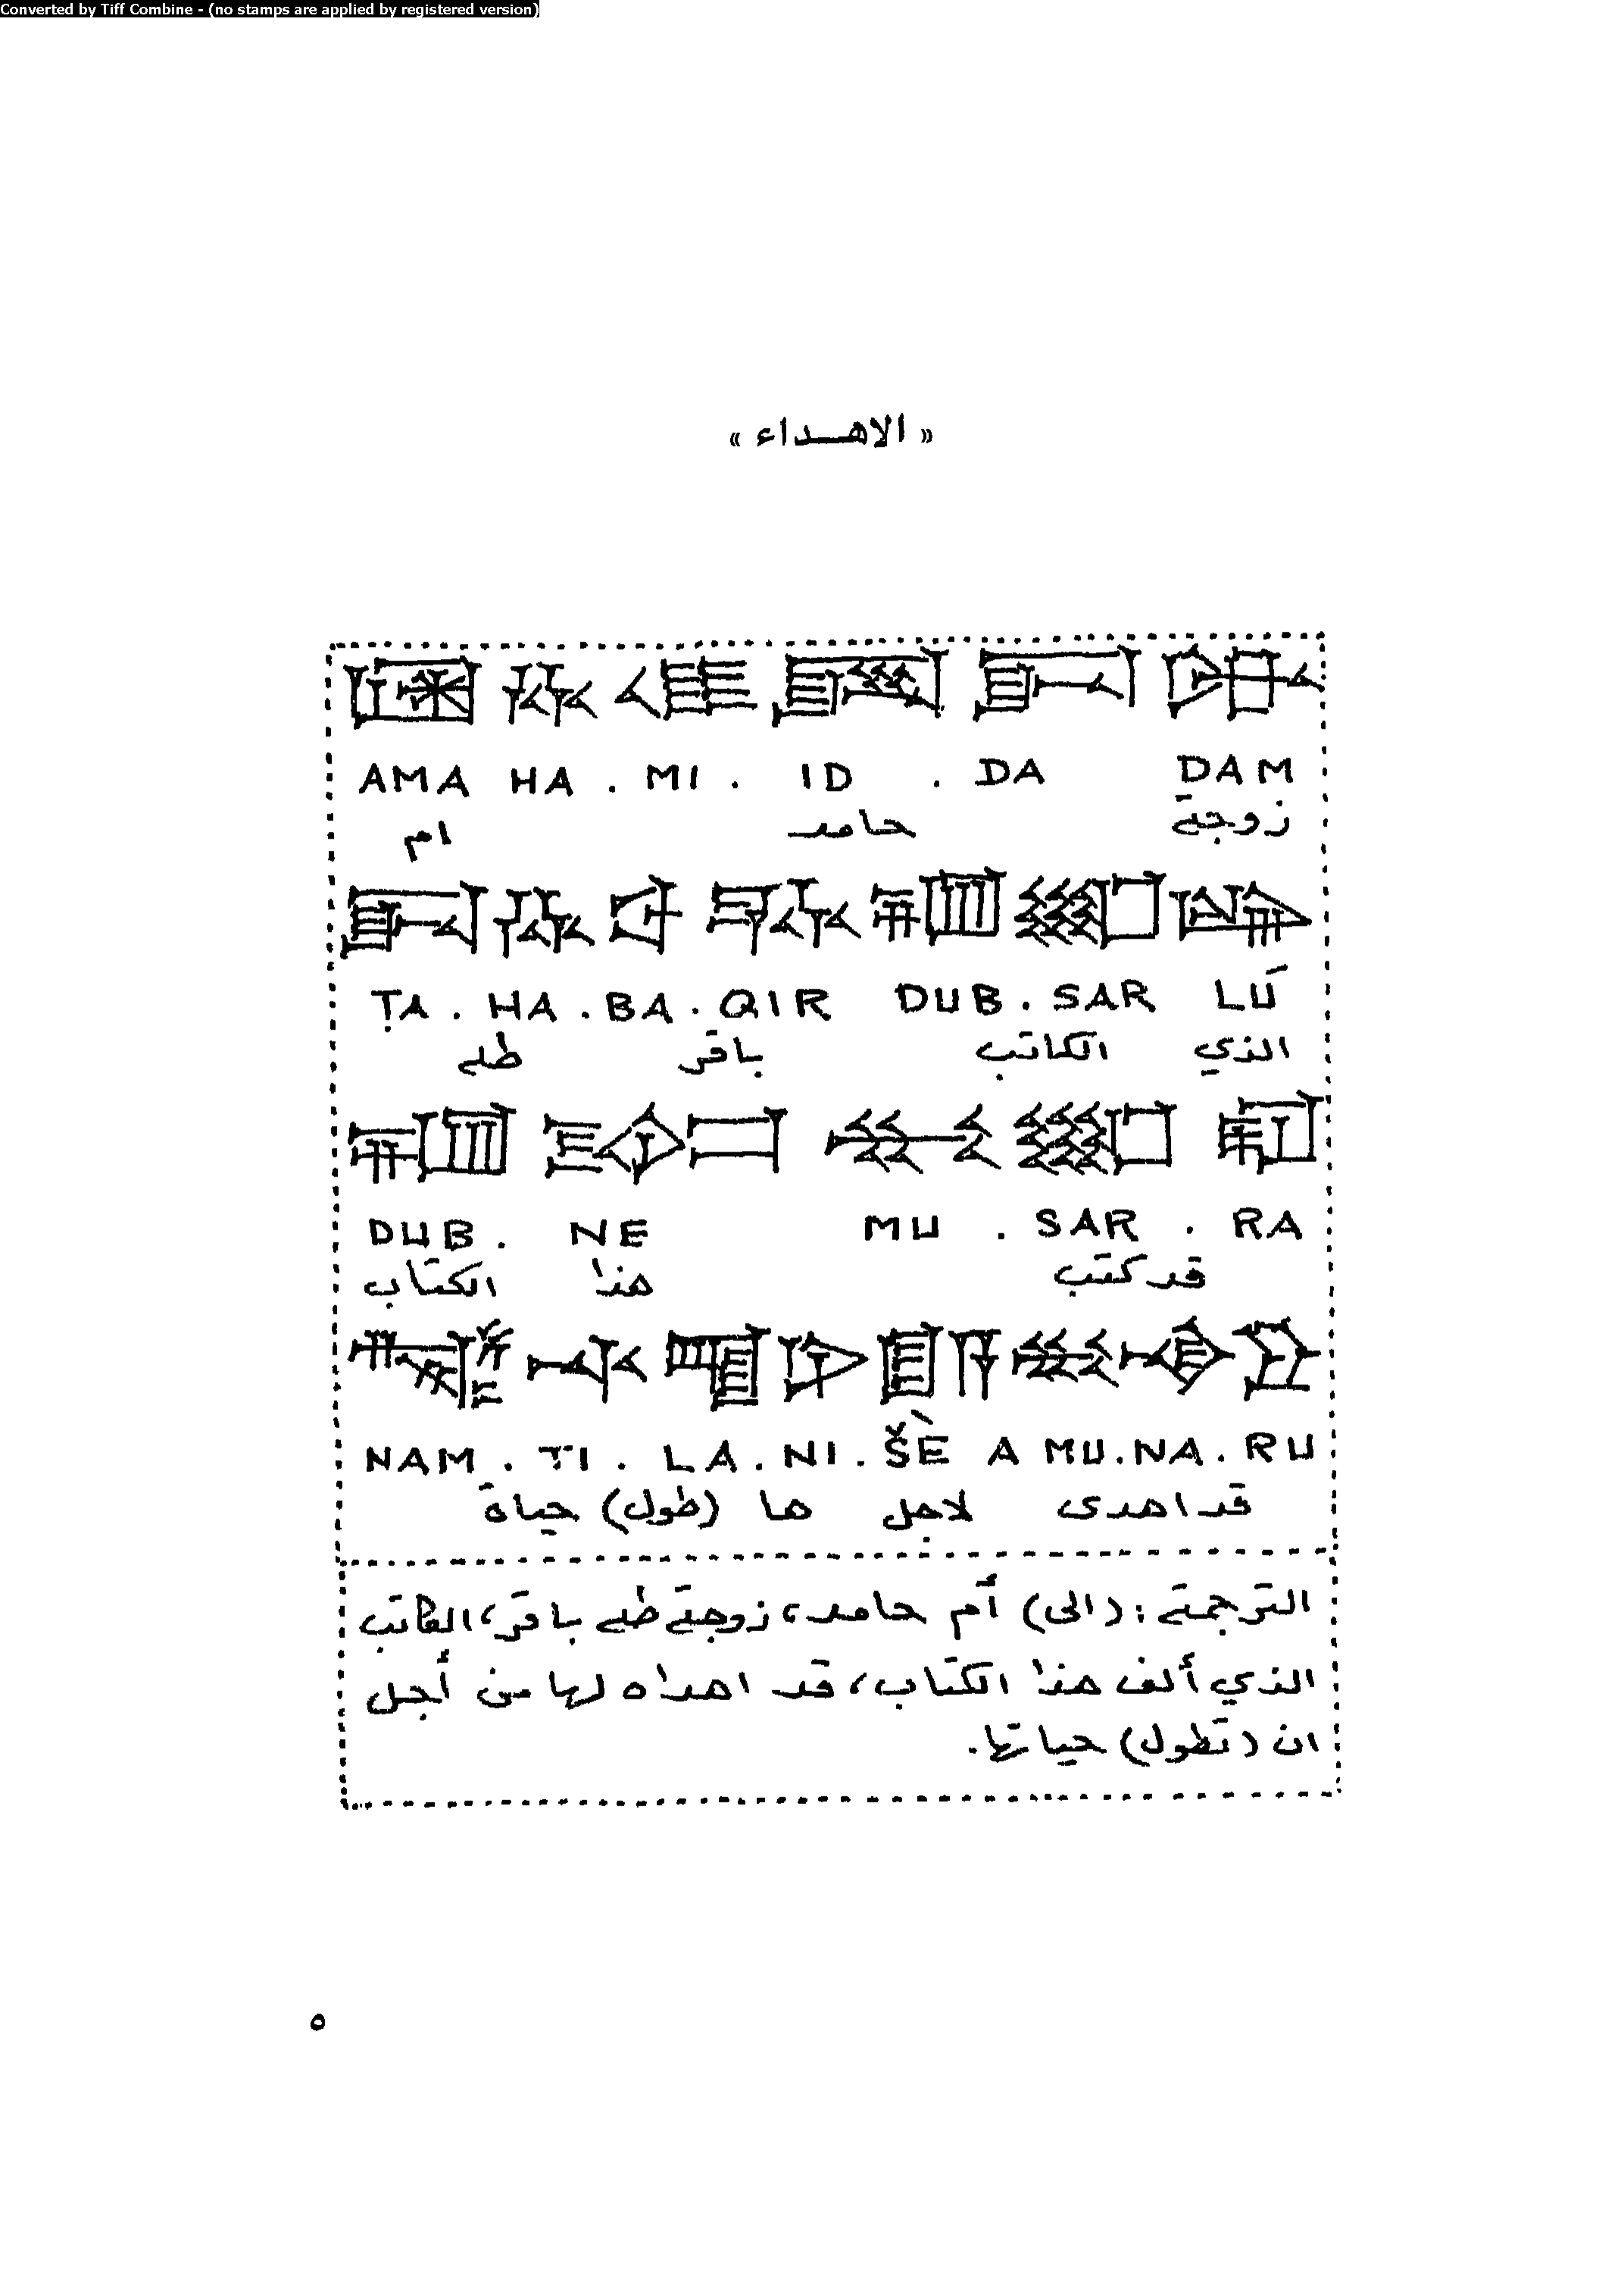 Converted by Tiff Combine - (no stamps are applied by registered version)
« الاهـداء »
AMA HA . MI . ID . DA DAM
ام حامد زوجة
ṬA . HA . BA . QIR DUB . SAR LÚ
طه باقر الكاتب الذي
DUB . NE MU . SAR . RA
الكتاب هذا قد كتب
NAM . TI . LA . NI . ŠÈ A MU . NA . RU
حياة (طول) ها لاجل قد اهدى
الترجمة : (الى) أم حامد، زوجة طه باقر، الكاتب
الذي ألف هذا الكتاب، قد اهداه لها من أجل
ان (تطول) حياتها.
٥